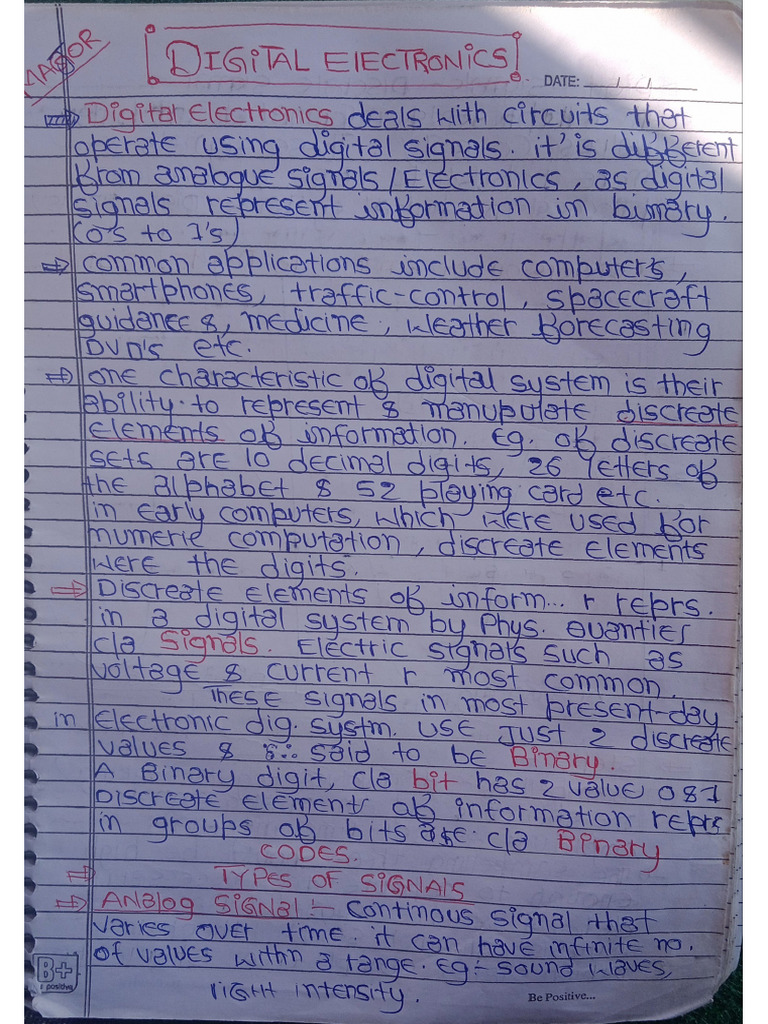 MAJOR
DIGITAL ELECTRONICS
DATE: __/__/__
⇒ Digital Electronics deals with circuits that
operate using digital signals. it's is different
from analogue signals/Electronics, as digital
signals represent information in binary.
(0's to 1's)
⇒ common applications include computer's,
smartphones, traffic-control, spacecraft
guidance &, medicine, weather forecasting
DVD's etc.
⇒ one characteristic of digital system is their
ability to represent & manupulate discreate
elements of information. Eg. of discreate
sets are 10 decimal digits, 26 letters of
the alphabet & 52 playing card etc.
in early computers, which were used for
numeric computation, discreate elements
were the digits.
⇒ Discreate elements of inform... r reprs.
in a digital system by Phys. Quanties
c/a Signals. Electric signals such as
voltage & current r most common.
These signals in most present-day
in Electronic dig. systm. use just 2 discreate
values & ∴ said to be Binary.
A Binary digit, c/a bit has 2 value 0 & 1
Discreate elements of information reprs
in groups of bits are c/a Binary
CODES.
⇒ TYPES OF SIGNALS
⇒ ANALOG SIGNAL :- continous signal that
varies over time. it can have infinite no.
of values withn a range. eg:- sound waves,
light intensity.
B+
positive
Be Positive...